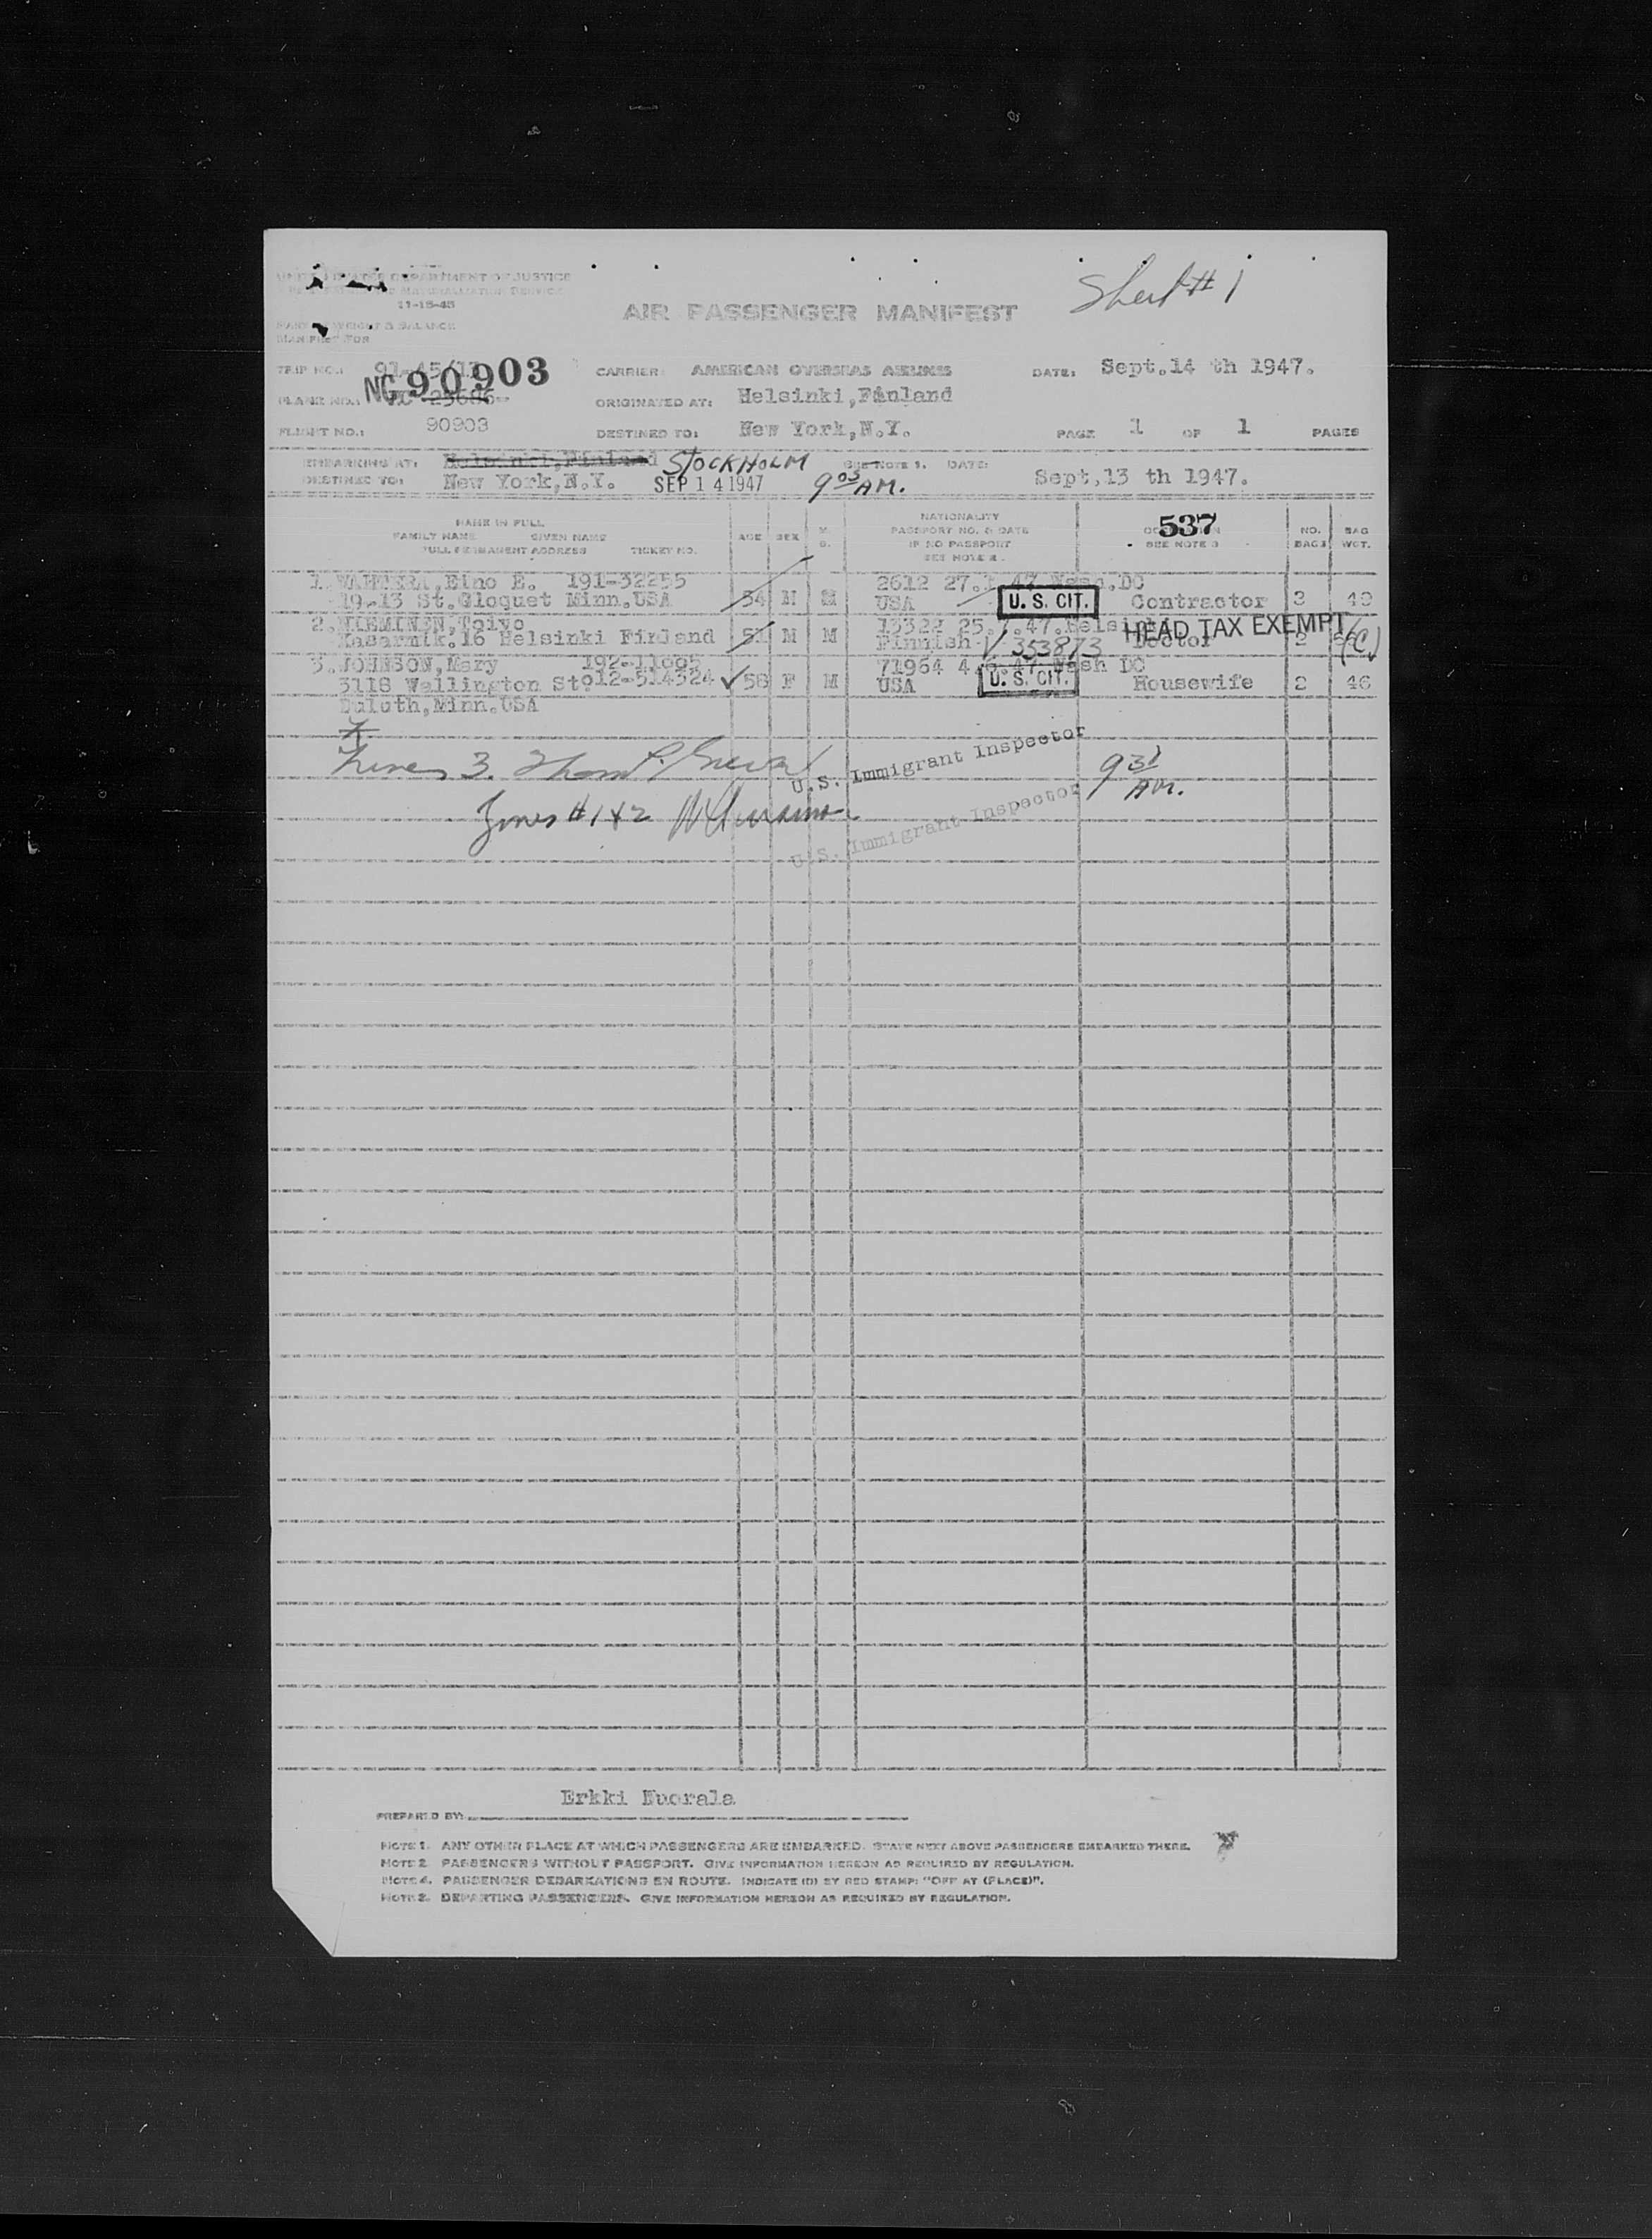 UNITED STATES DEPARTMENT OF JUSTICE
11-15-45
Sheet # 1
AIR PASSENGER MANIFEST
MANIFEST FOR
TRIP NO.:
NC 90903
CARRIER: AMERICAN OVERSEAS AIRLINES
DATE: Sept.14 th 1947.
PLANE NO.:
ORIGINATED AT: Helsinki,Finland
FLIGHT NO.: 90903
DESTINED TO: New York,N.Y.
PAGE 1 OF 1 PAGES
EMBARKING AT: Helsinki,Finland STOCKHOLM SEE NOTE 1. DATE:
DESTINED TO: New York,N.Y. SEP 14 1947 9 03 AM. Sept,13 th 1947.
NAME IN FULL
FAMILY NAME GIVEN NAME
FULL PERMANENT ADDRESS TICKET NO.
AGE SEX M. S.
NATIONALITY
PASSPORT NO. & DATE
IF NO PASSPORT
SEE NOTE 2.
537
SEE NOTE 3
NO. BAGS
BAG WGT.
1. WAHTERA,Eino E. 191-32255 2612 27.1.47 Wash.DC
19-13 St.Cloquet Minn.USA 54 M M USA U. S. CIT. Contractor 3
2. NIEMINEN,Toivo 13322 25.7.47.Helsinki HEAD TAX EXEMPT (C)
Kasarmik.16 Helsinki Finland 51 M M Finnish 353873 Doctor 2
3. JOHNSON,Mary 71964 4.6.47. Wash DC
3118 Wellington St. 012-514324 58 F M USA U. S. CIT. Housewife 2 46
Duluth,Minn.USA
Lines 3. U.S. Immigrant Inspector 9 31 AM.
Lines #1 & 2 U.S. Immigrant Inspector
Erkki Nuorala
PREPARED BY:
NOTE 1. ANY OTHER PLACE AT WHICH PASSENGERS ARE EMBARKED. STATE NEXT ABOVE PASSENGERS EMBARKED THERE.
NOTE 2. PASSENGERS WITHOUT PASSPORT. GIVE INFORMATION HEREON AS REQUIRED BY REGULATION.
NOTE 4. PASSENGER DEBARKATIONS EN ROUTE. INDICATE (D) BY RED STAMP: "OFF AT (PLACE)".
NOTE 3. DEPARTING PASSENGERS. GIVE INFORMATION HEREON AS REQUIRED BY REGULATION.